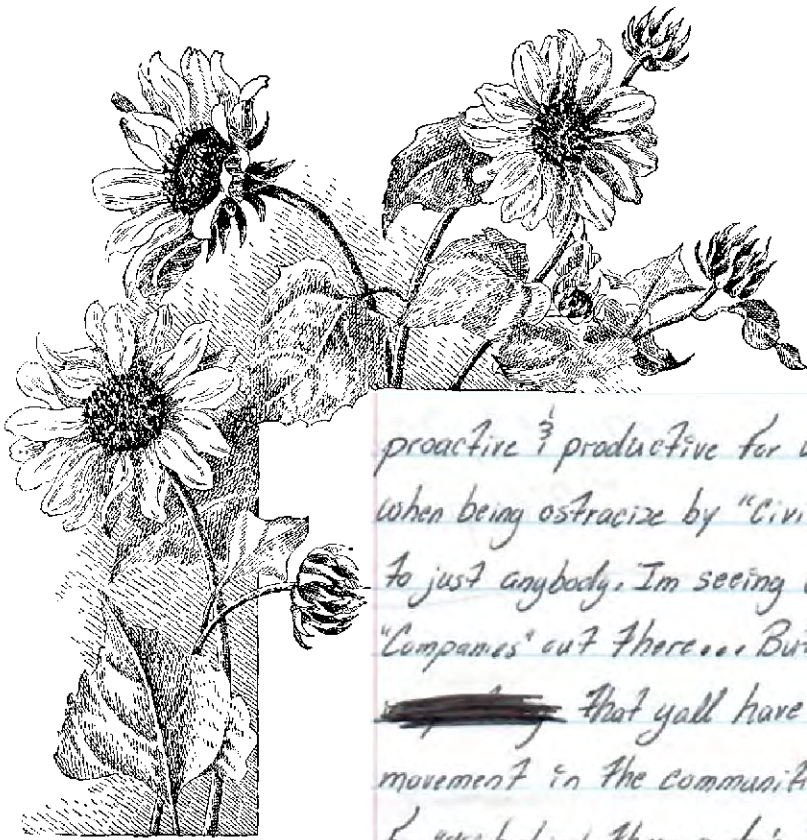 proactive & productive for
when being ostracize by "Civi
to just anybody. Im seeing
"Companies" out there... But
that yall have
movement in the communit